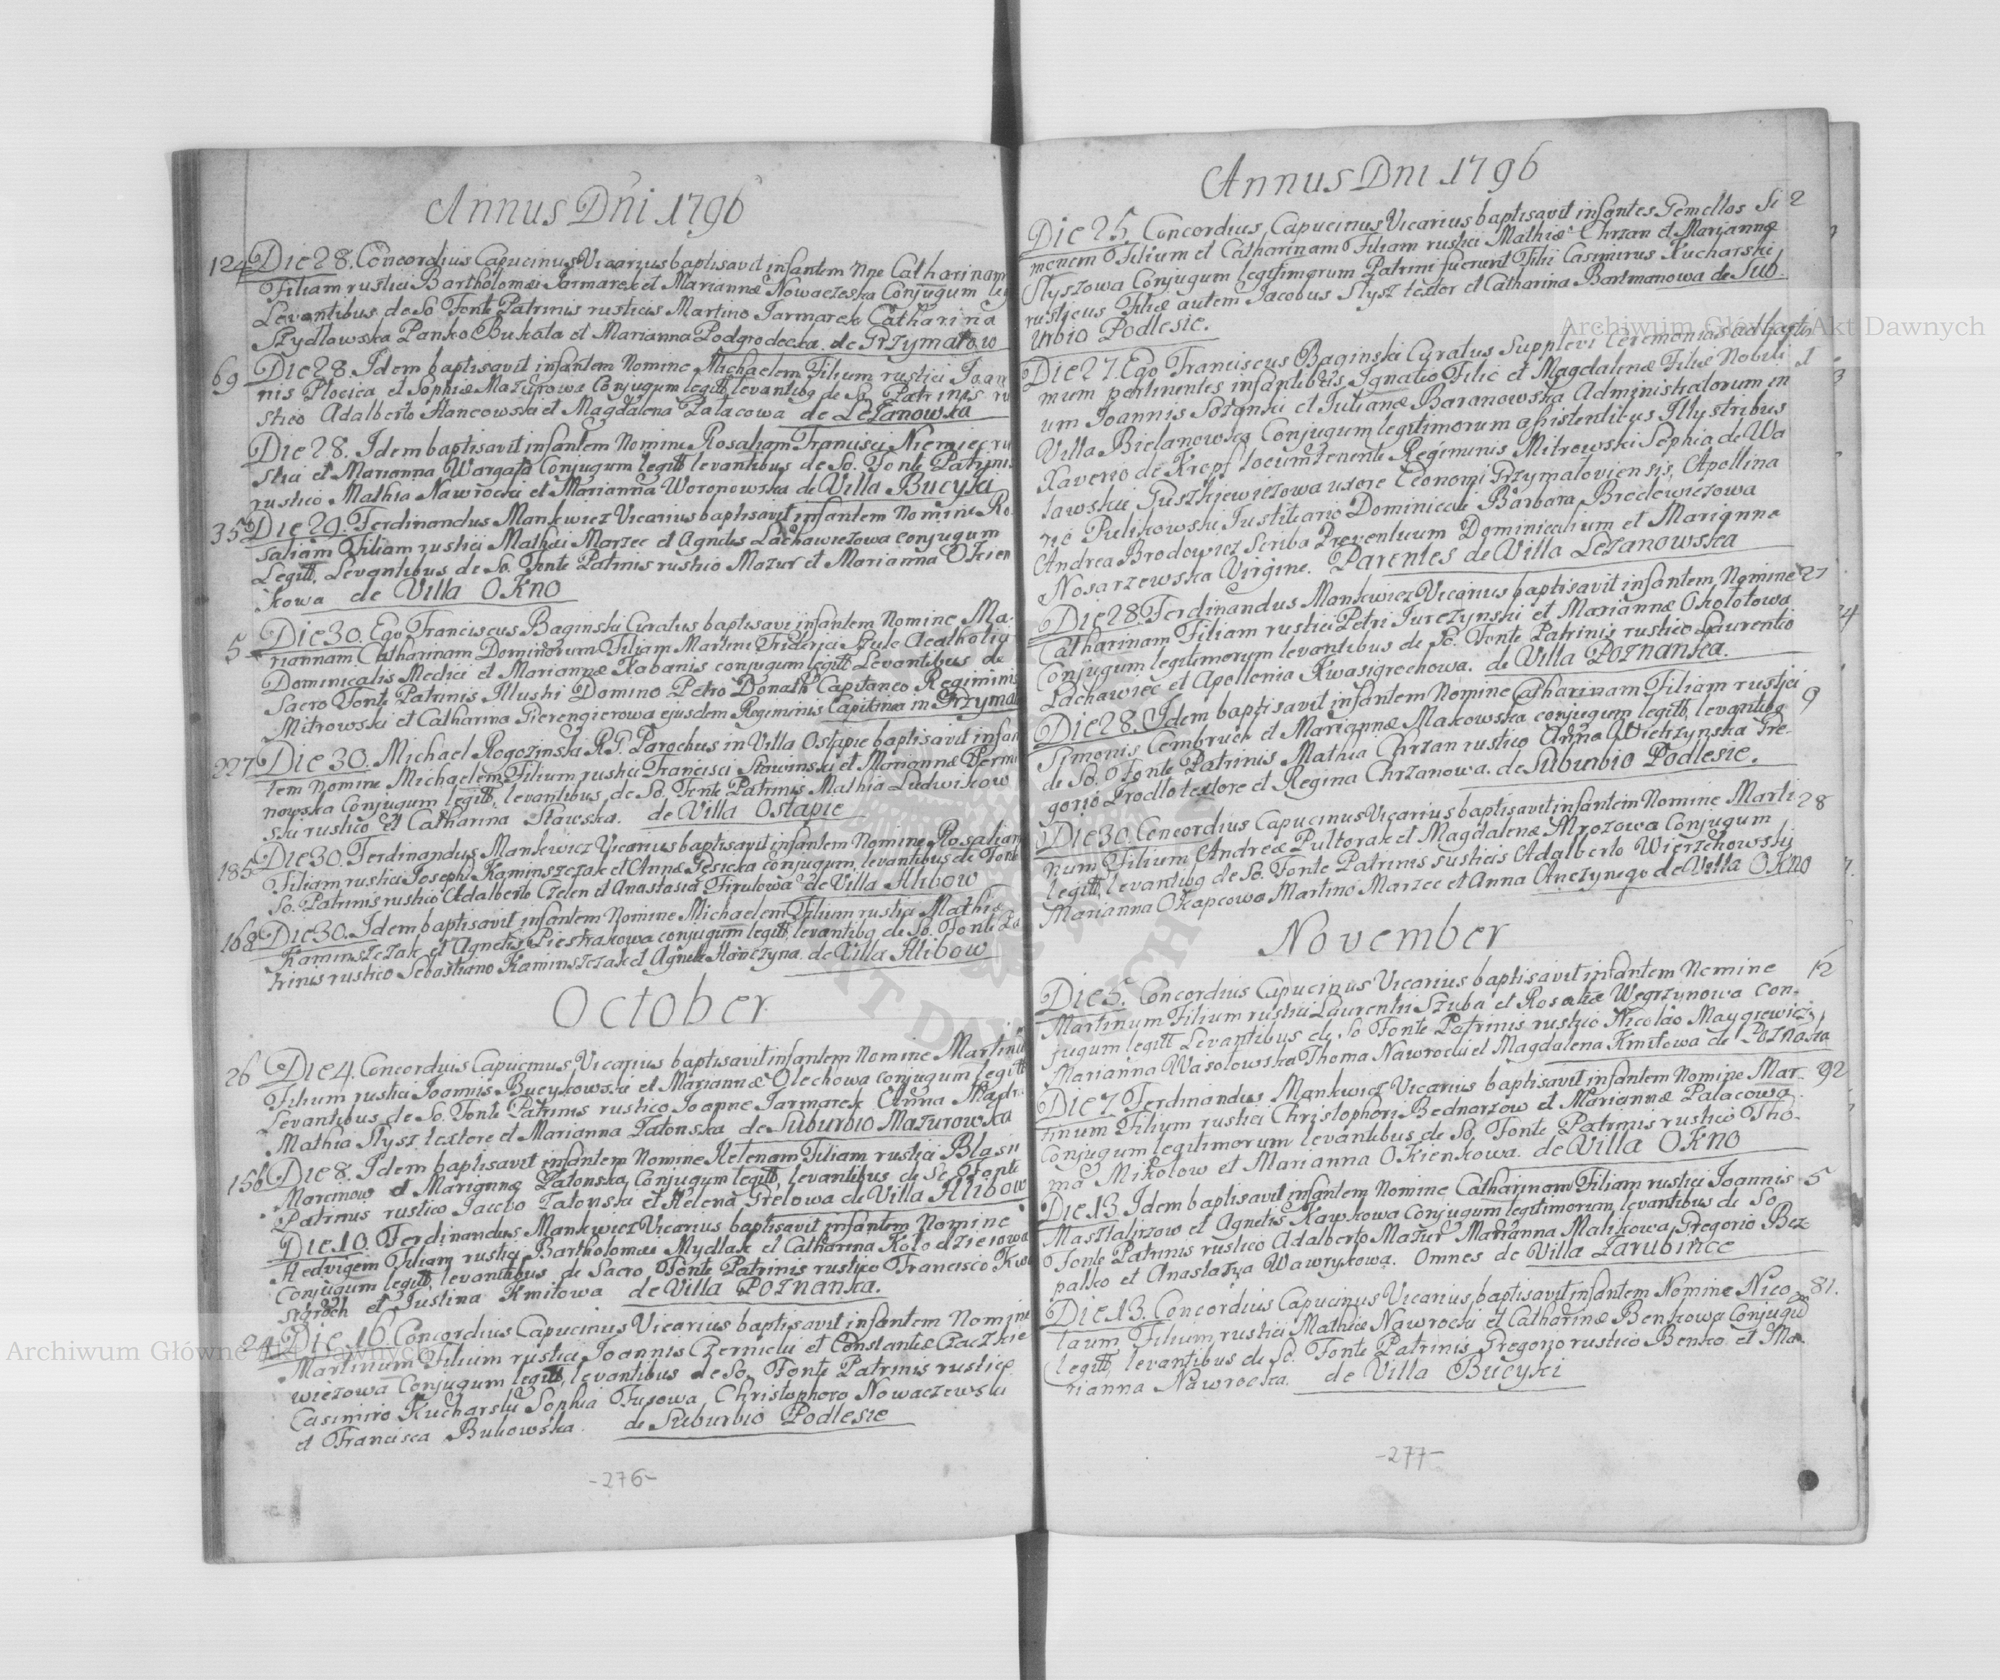 Annus Dni 1796
124 Die 28. Concordius Capucinus Vicarius baptisavit infantem Nne Catharinam
Filiam rustici Bartholomæi Jarmarek et Mariannæ Nowaczeska Conjugum
Levantibus de So Fonte Patrinis rusticis Martino Jarmarek Catharina
Szydlowska Panko Bukata et Marianna Podgrodecka de Grzymałow
69 Die 28. Idem baptisavit infantem Nomine Michaelem Filium rustici Joan
nis Płocica et Sophiæ Mazurowa Conjugum legitt levantibg de So Patrinis ru
stico Adalberto Hancowska et Magdalena Pałacowa de Lezanowka
Die 28. Idem baptisavit infantem Nomine Rosaliam Francisci Niemiec ru
stici et Marianna Wargata Conjugum legitt levantibus de So. Fonte Patrinis
rustico Mathia Nawrocki et Marianna Woronowska de Villa Bucyki
35 Die 29. Ferdinandus Mankwicz Vicarius baptisavit infantem Nomine Ro
saliam Filiam rustici Mathæi Marzec et Agnetis Lachawiezowa conjugum
Legitt. Levantibus de So. Fonte Patrinis rustico Mazur et Marianna Okien
kowa de Villa OKNO
5 Die 30. Ego Franciscus Baginski Curatus baptisavi infantem Nomine Ma-
riannam Catharinam Dominorum Filiam Martini Friderici Acatholici
Dominicalis Medici et Mariannæ Kabanis conjugum legitt Levantibus de
Sacro Fonte Patrinis Illustri Domino Petro Donath Capitaneo Regiminis
Mitrowski et Catharina Gierengierowa ejusdem Regiminis Capitinea in Grzyma
227 Die 30. Michael Rogozinski R.G. Parochus in Villa Ostapie baptisavit infan
tem Nomine Michaelem Filium rustici Francisci Słowinski et Mariannæ Germa
nowska Conjugum legitt. levantibus de So. Fonte Patrinis Mathia Ludwikow
ski rustico et Catharina Sławska. de Villa Ostapie
185 Die 30. Ferdinandus Mankwicz Vicarius baptisavit infantem Nomine Rosaliam
Filiam rustici Josephi Kaminszczak et Annæ Gesicka conjugum levantibus de Fonte
So. Patrinis rustico Adalberto Czelen et Anastasia Firulowa de Villa Hlibow
168 Die 30. Idem baptisavit infantem Nomine Michaelem Filium rustici Mathis
Kaminszczak et Agnetis Piestrakowa conjugum legitt levantibg de So. Fonte Pa
trinis rustico Sebastiano Kaminszczak et Agnete Hanczyna de Villa Hlibow
October
26 Die 4. Concordius Capucinus Vicarius baptisavit infantem Nomine Martinu
Filium rustici Joannis Bucykowska et Mariannæ Olechowa conjugum legitt
Levantibus de So. Fonte Patrinis rustico Joanne Jarmarek Anna
Mathia Słysz textore et Marianna Tatonska de Suburbio Mazurowka
156 Die 8. Idem baptisavit infantem Nomine Helenam Filiam rustici Blasii
Marcinow et Mariannæ Tatonska Conjugum legitt, levantibus de So Fonte
Patrinis rustico Jacobo Tatonska et Helena Grelowa de Villa Hlibow
Die 10. Ferdinandus Mankwicz Vicarius baptisavit infantem Nomine
Hedvigem Filiam rustici Bartholomæi Mydlak et Catharina Kołodzieiowa
Conjugum legitt, levantibus de Sacro Fonte Patrinis rustico Francisco Kwa
sigroch et Justina Kmitowa de Villa POZNANKA.
24 Die 16. Concordius Capucinus Vicarius baptisavit infantem Nomine
Martinum Filium rustici Joannis Czernicki et Constantiæ Gaczkie
wiezowa Conjugum legitt, levantibus de So. Fonte Patrinis rustico
Casimiro Kucharski Sophia Fusowa, Christophoro Nowaczewski
et Francisca Bukowska. de Suburbio Podlesie
-276-
Annus Dni 1796
Die 25. Concordius Capucinus Vicarius baptisavit infantes Gemellos Si 2
monem Filium et Catharinam Filiam rustici Mathiæ Chrzan et Mariannæ
Słyszowa Conjugum legitimorum Patrini fuerunt Filii Casimirus Kucharski
rusticus Filiæ autem Jacobus Słysz textor et Catharina Bartmanowa de Sub.
urbio Podlesie.
Die 27. Ego Franciscus Baginski Curatus Supplevi Ceremonias ad baptis
mum pertinentes infantibus Ignatio Filio et Magdalenæ Filiæ Nobili 1
um Joannis Sozanski et Julianæ Baranowska Administratorum in
Villa Bielanowska Conjugum legitimorum assistentibus Illustribus
Xaverio de Kropf locumtenente Regiminis Mitrowski Sophia de Wa
lawski Guszkiewiezowa uxore Œconomi Grzymaloviensis, Apollina
rio Pulikowski Justitiario Dominicali Barbara Brodowiczowa
Andrea Brodowicz Scriba Proventuum Dominicalium et Marianna
Nosarzewska Virgine. Parentes de Villa Lezanowka
Die 28. Ferdinandus Mankwicz Vicarius baptisavit infantem Nomine 27
Catharinam Filiam rustici Petri Jurczynski et Mariannæ Okołotowa
Conjugum legitimorum levantibus de So. Fonte Patrinis rustico Laurentio
Lachawiec et Apollonia Kwasigrochowa. de Villa POZNANKA.
Die 28. Idem baptisavit infantem Nomine Catharinam Filiam rustici 9
Simonis Cembruch et Mariannæ Makowska conjugum legitt, levantibg
de So. Fonte Patrinis Mathia Chrzan rustico Anna Wietrzynska Gre-
gorio Frodlo textore et Regina Chrzanowa. de Suburbio Podlesie.
Die 30. Concordius Capucinus Vicarius baptisavit infantem Nomine Marti 28
num Filium Andreæ Pułtorak et Magdalenæ Mrozowa Conjugum
legitt, levantibg de So. Fonte Patrinis rusticis Adalberto Wierzchowski
Marianna Okapcowa Martino Marzec et Anna de Villa OKNO
November
Die 5. Concordius Capucinus Vicarius baptisavit infantem Nomine 12
Martinum Filium rustici Laurentii Szuba et Rosaliæ Wegrzynowa Con-
jugum legitt Levantibus de So Fonte Patrinis rustico Nicolao Maygrewicz,
Marianna Wasolowska Thoma Nawrocki et Magdalena Kmitowa de Poznaka
Die 7 Ferdinandus Mankwicz Vicarius baptisavit infantem Nomine Mar- 92
tinum Filium rustici Christophori Bednarzow et Mariannæ Pałacowa
Conjugum legitimorum levantibus de So, Fonte Patrinis rustico Tho-
ma Mikołow et Marianna Okienkowa. de Villa OKNO
Die 13. Idem baptisavit infantem Nomine Catharinam Filiam rustici Joannis 5
Masztalirzow et Agnetis Kawkowa Conjugum legitimorum levantibus de So
Fonte Patrinis rustico Adalberto Mazur Marianna Malikowa, Gregorio Bez
palko et Anastazya Wawrykowa. Omnes de Villa Zarubince
Die 13. Concordius Capucinus Vicarius baptisavit infantem Nomine Nico 81.
laum Filium rustici Mathiæ Nawrocki et Catharinæ Benkowa Conjugu
legitt, levantibus de So. Fonte Patrinis Gregorio rustico Benko et Ma
rianna Nawrocka. de Villa Bucyki
-277-
Archiwum Główne Akt Dawnych
Archiwum Główne Akt Dawnych